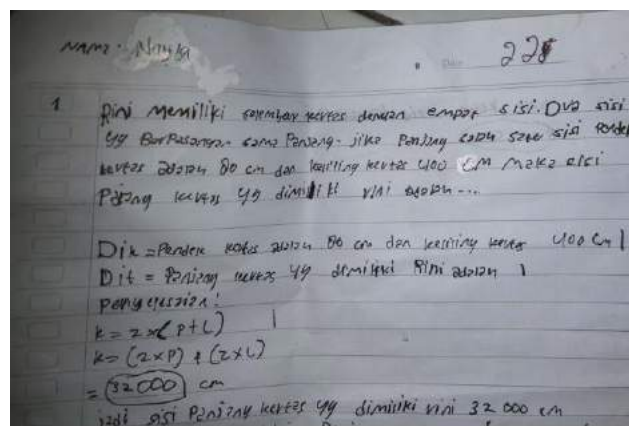 Nama : Nayla
228
1 Rini memiliki selembar kertas dengan empat sisi. Dua sisi
yg berpasangan sama Panjang. jika Panjang salah satu sisi Pendek
kertas adalah 80 cm dan keliling kertas 400 cm maka sisi
Panjang kertas yg dimiliki rini adalah ...
Dik = Pendek kertas adalah 80 cm dan keliling kertas 400 cm
Dit = Panjang kertas yg dimiliki Rini adalah
Penyelesaian :
k = 2 x ( P + L )
k = (2 x P) + (2 x L)
= 32 000 cm
jadi sisi Panjang kertas yg dimiliki rini 32 000 cm